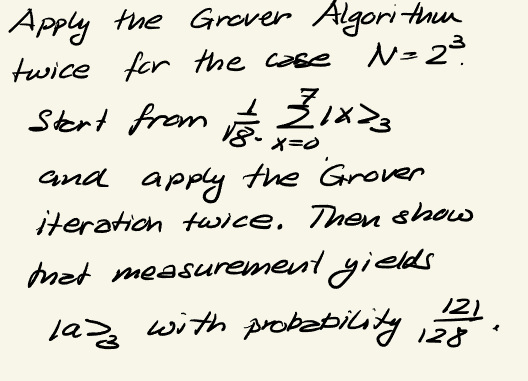 Apply the Grover Algorithm
twice for the case N = 2³.
Start from 1/√8 · ∑_{x=0}^{7} |x>₃
and apply the Grover
iteration twice. Then show
that measurement yields
|a>₃ with probability 121/128.